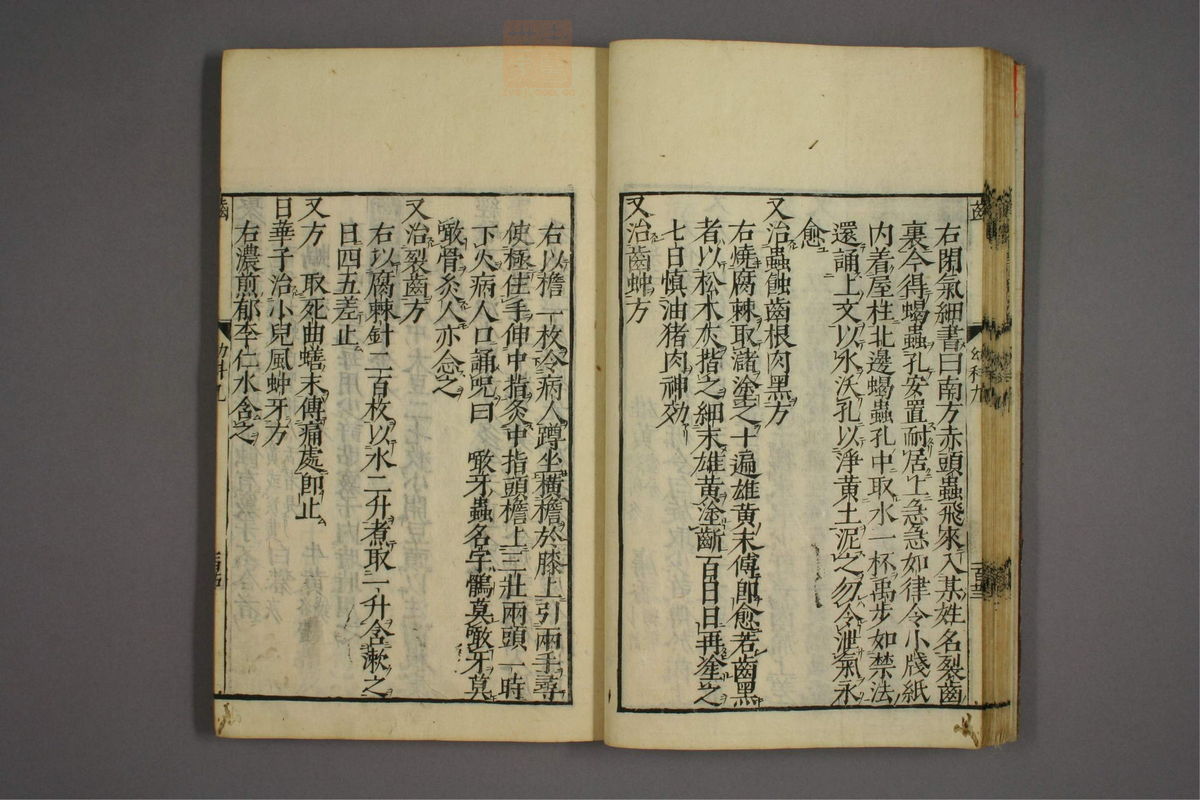 右閉氣細書曰南方赤頭蟲飛來入某姓名裂齒
裏今得蝎蟲孔安置耐居上急急如律令小牋紙
内着屋柱北邊蝎蟲孔中取水一杯禹步如禁法
還誦上文以水沃孔以淨黄土泥之勿令泄氣永
愈
又治蟲蝕齒根肉黒方
右燒腐棘取瀋塗之十遍雄黄末傅即愈若齒黑
者以松木灰揩之細末雄黄塗齗百日日再塗之
七日慎油猪肉神効
又治齒䖝方
右以檐一枚令病人蹲坐横檐於膝上引兩手尋
使極住手伸中指灸中指頭檐上三壯兩頭一時
下火病人口誦呪曰 噉牙蟲名字鶻莫噉牙莫
噉骨灸人亦念之
又治裂齒方
右以腐棘針二百枚以水二升煮取一升含漱之
日四五差止
又方 取死曲蟮末傅痛處即止
日華子治小兒風蚛牙方
右濃煎郁李仁水含之